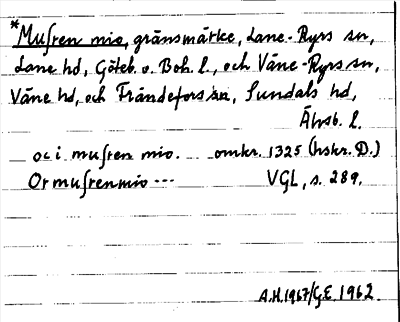 *Muſren mio, gränsmärke, Lane-Ryrs sn,
Lane hd, Göteb. o. Boh. l., och Väne-Ryrs sn,
Väne hd, och Frändefors sn, Sundals hd,
Älvsb. l.
oc i muſren mio. omkr. 1325 (hskr. D.)
Or muſrenmio --- VGL, s. 289.
A.H. 1967/G.E. 1962